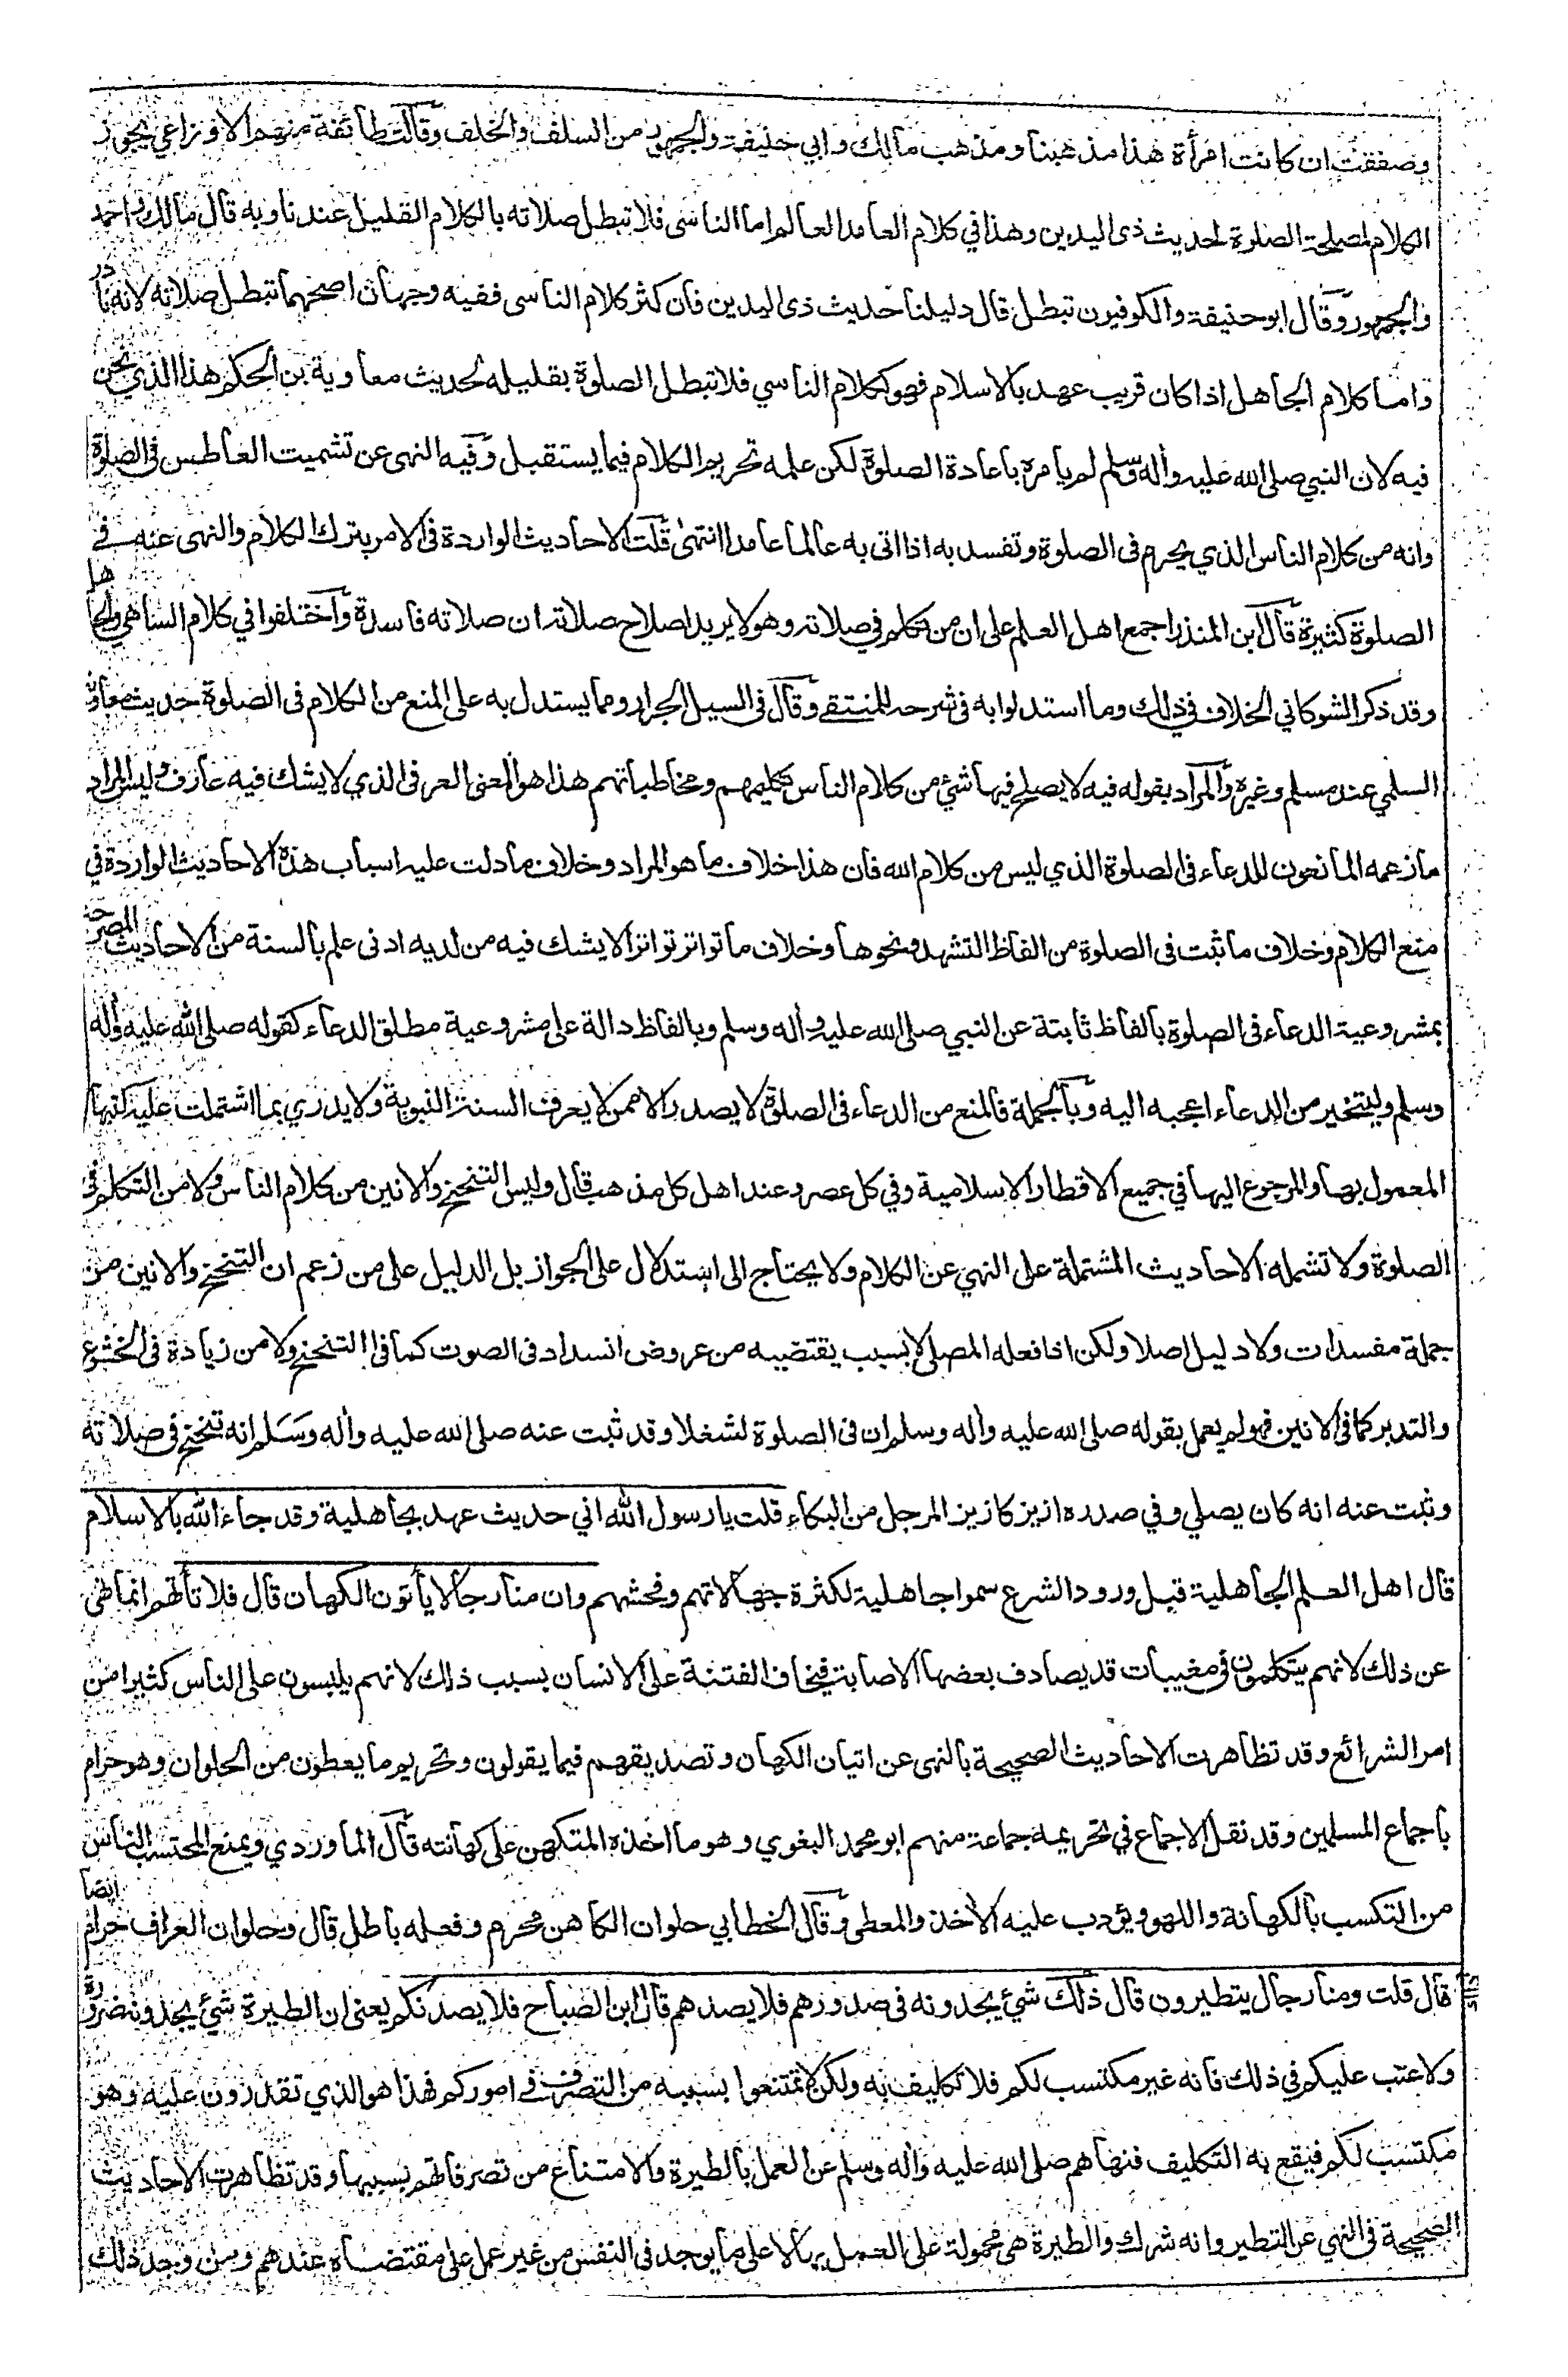 وصفقت ان كانت امرأة هذا مذهبنا ومذهب مالك وابي حنيفة والجمهور من السلف والخلف وقالت طائفة منهم الاوزاعي يجوز
الكلام لمصلحة الصلوة لحديث ذى اليدين وهذا في كلام العامد العالم اما الناسى فلا تبطل صلاته بالكلام القليل عندنا وبه قال مالك واحمد
والجمهور وقال ابو حنيفة والكوفيون تبطل قال دليلنا حديث ذى اليدين فان كثر كلام الناسى ففيه وجهان اصحهما تبطل صلاته لانه نادر
واما كلام الجاهل اذا كان قريب عهد بالاسلام فهو ككلام الناسي فلا تبطل الصلوة بقليله لحديث معاوية بن الحكم هذا الذي نحن
فيه لان النبي صلى الله عليه واله وسلم لم يامره باعادة الصلوة لكن علمه تحريم الكلام فيما يستقبل وفيه النهى عن تشميت العاطس فى الصلوة
وانه من كلام الناس الذي يحرم فى الصلوة وتفسد به اذا اتى به عالما عامدا انتهى قلت الاحاديث الواردة فى الامر بترك الكلام والنهى عنه في
الصلوة كثيرة قال ابن المنذر اجمع اهل العلم على ان من تكلم في صلاته وهو لا يريد اصلاح صلاته ان صلاته فاسدة واختلفوا في كلام الساهي والجاهل
وقد ذكر الشوكاني الخلاف في ذلك وما استدلوا به فى شرحه للمنتقى وقال فى السيل الجرار ومما يستدل به على المنع من الكلام فى الصلوة حديث معاوية
السلمي عند مسلم وغيره والمراد بقوله فيه لا يصلح فيها شئ من كلام الناس تكليمهم ومخاطباتهم هذا هو المعنى العرفى الذي لا يشك فيه عارف وليس المراد
ما زعمه المانعون للدعاء فى الصلوة الذي ليس من كلام الله فان هذا خلاف ما هو المراد وخلاف ما دلت عليه اسباب هذه الاحاديث الواردة في
منع الكلام وخلاف ما ثبت فى الصلوة من الفاظ التشهد ونحوها وخلاف ما تواتر تواترا لا يشك فيه من لديه ادنى علم بالسنة من الاحاديث المصرحة
بمشروعية الدعاء فى الصلوة بالفاظ ثابتة عن النبي صلى الله عليه واله وسلم وبالفاظ دالة على مشروعية مطلق الدعاء كقوله صلى الله عليه واله
وسلم وليتخير من الدعاء اعجبه اليه وبالجملة فالمنع من الدعاء فى الصلوة لا يصدر الا ممن لا يعرف السنة النبوية ولا يدري بما اشتملت عليه كتبها
المعمول بها والمرجوع اليها في جميع الاقطار الاسلامية وفي كل عصر وعند اهل كل مذهب قال وليس التنحنح والانين من كلام الناس ولا من التكلم فى
الصلوة ولا تشمله الاحاديث المشتملة على النهي عن الكلام ولا يحتاج الى استدلال على الجواز بل الدليل على من زعم ان التنحنح والانين من
جملة مفسدات ولا دليل اصلا ولكن اذا فعله المصلى لا بسبب يقتضيه من عروض انسداد فى الصوت كما فى التنحنح ولا من زيادة فى الخشوع
والتدبر كما فى الانين فهو لم يعمل بقوله صلى الله عليه واله وسلم ان فى الصلوة لشغلا وقد ثبت عنه صلى الله عليه واله وسلم انه تنحنح فى صلاته
وثبت عنه انه كان يصلي وفي صدره ازيز كازيز المرجل من البكاء قلت يا رسول الله اني حديث عهد بجاهلية وقد جاء الله بالاسلام
قال اهل العلم الجاهلية قبل ورود الشرع سموا جاهلية لكثرة جهالاتهم وفحشهم وان منا رجالا يأتون الكهان قال فلا تأتهم انما نهى
عن ذلك لانهم يتكلمون فى مغيبات قد يصادف بعضها الاصابة فيخاف الفتنة على الانسان بسبب ذلك لانهم يلبسون على الناس كثيرا من
امر الشرائع وقد تظاهرت الاحاديث الصحيحة بالنهى عن اتيان الكهان وتصديقهم فيما يقولون وتحريم ما يعطون من الحلوان وهو حرام
باجماع المسلمين وقد نقل الاجماع في تحريمه جماعة منهم ابو محمد البغوي وهو ما اخذه المتكهن على كهانته قال الماوردي ويمنع المحتسب الناس
من التكسب بالكهانة واللهو ويؤدب عليه الأخذ والمعطى وقال الخطابي حلوان الكاهن محرم وفعله باطل قال وحلوان العراف حرام ايضا
قال قلت ومنا رجال يتطيرون قال ذلك شئ يجدونه فى صدورهم فلا يصدهم قال ابن الصباح فلا يصدنكم يعنى ان الطيرة شئ يجدونه ضرورة
ولا عتب عليكم في ذلك فانه غير مكتسب لكم فلا تكليف به ولكن لا تمتنعوا بسببه من التصرف في اموركم فهذا هو الذي تقدرون عليه وهو
مكتسب لكم فيقع به التكليف فنهاهم صلى الله عليه واله وسلم عن العمل بالطيرة والامتناع من تصرفاتهم بسببها وقد تظاهرت الاحاديث
الصحيحة فى النهي عن التطير وانه شرك والطيرة هى محمولة على العمل بها لا على ما يوجد فى النفس من غير عمل على مقتضاه عندهم ومن وجد ذلك